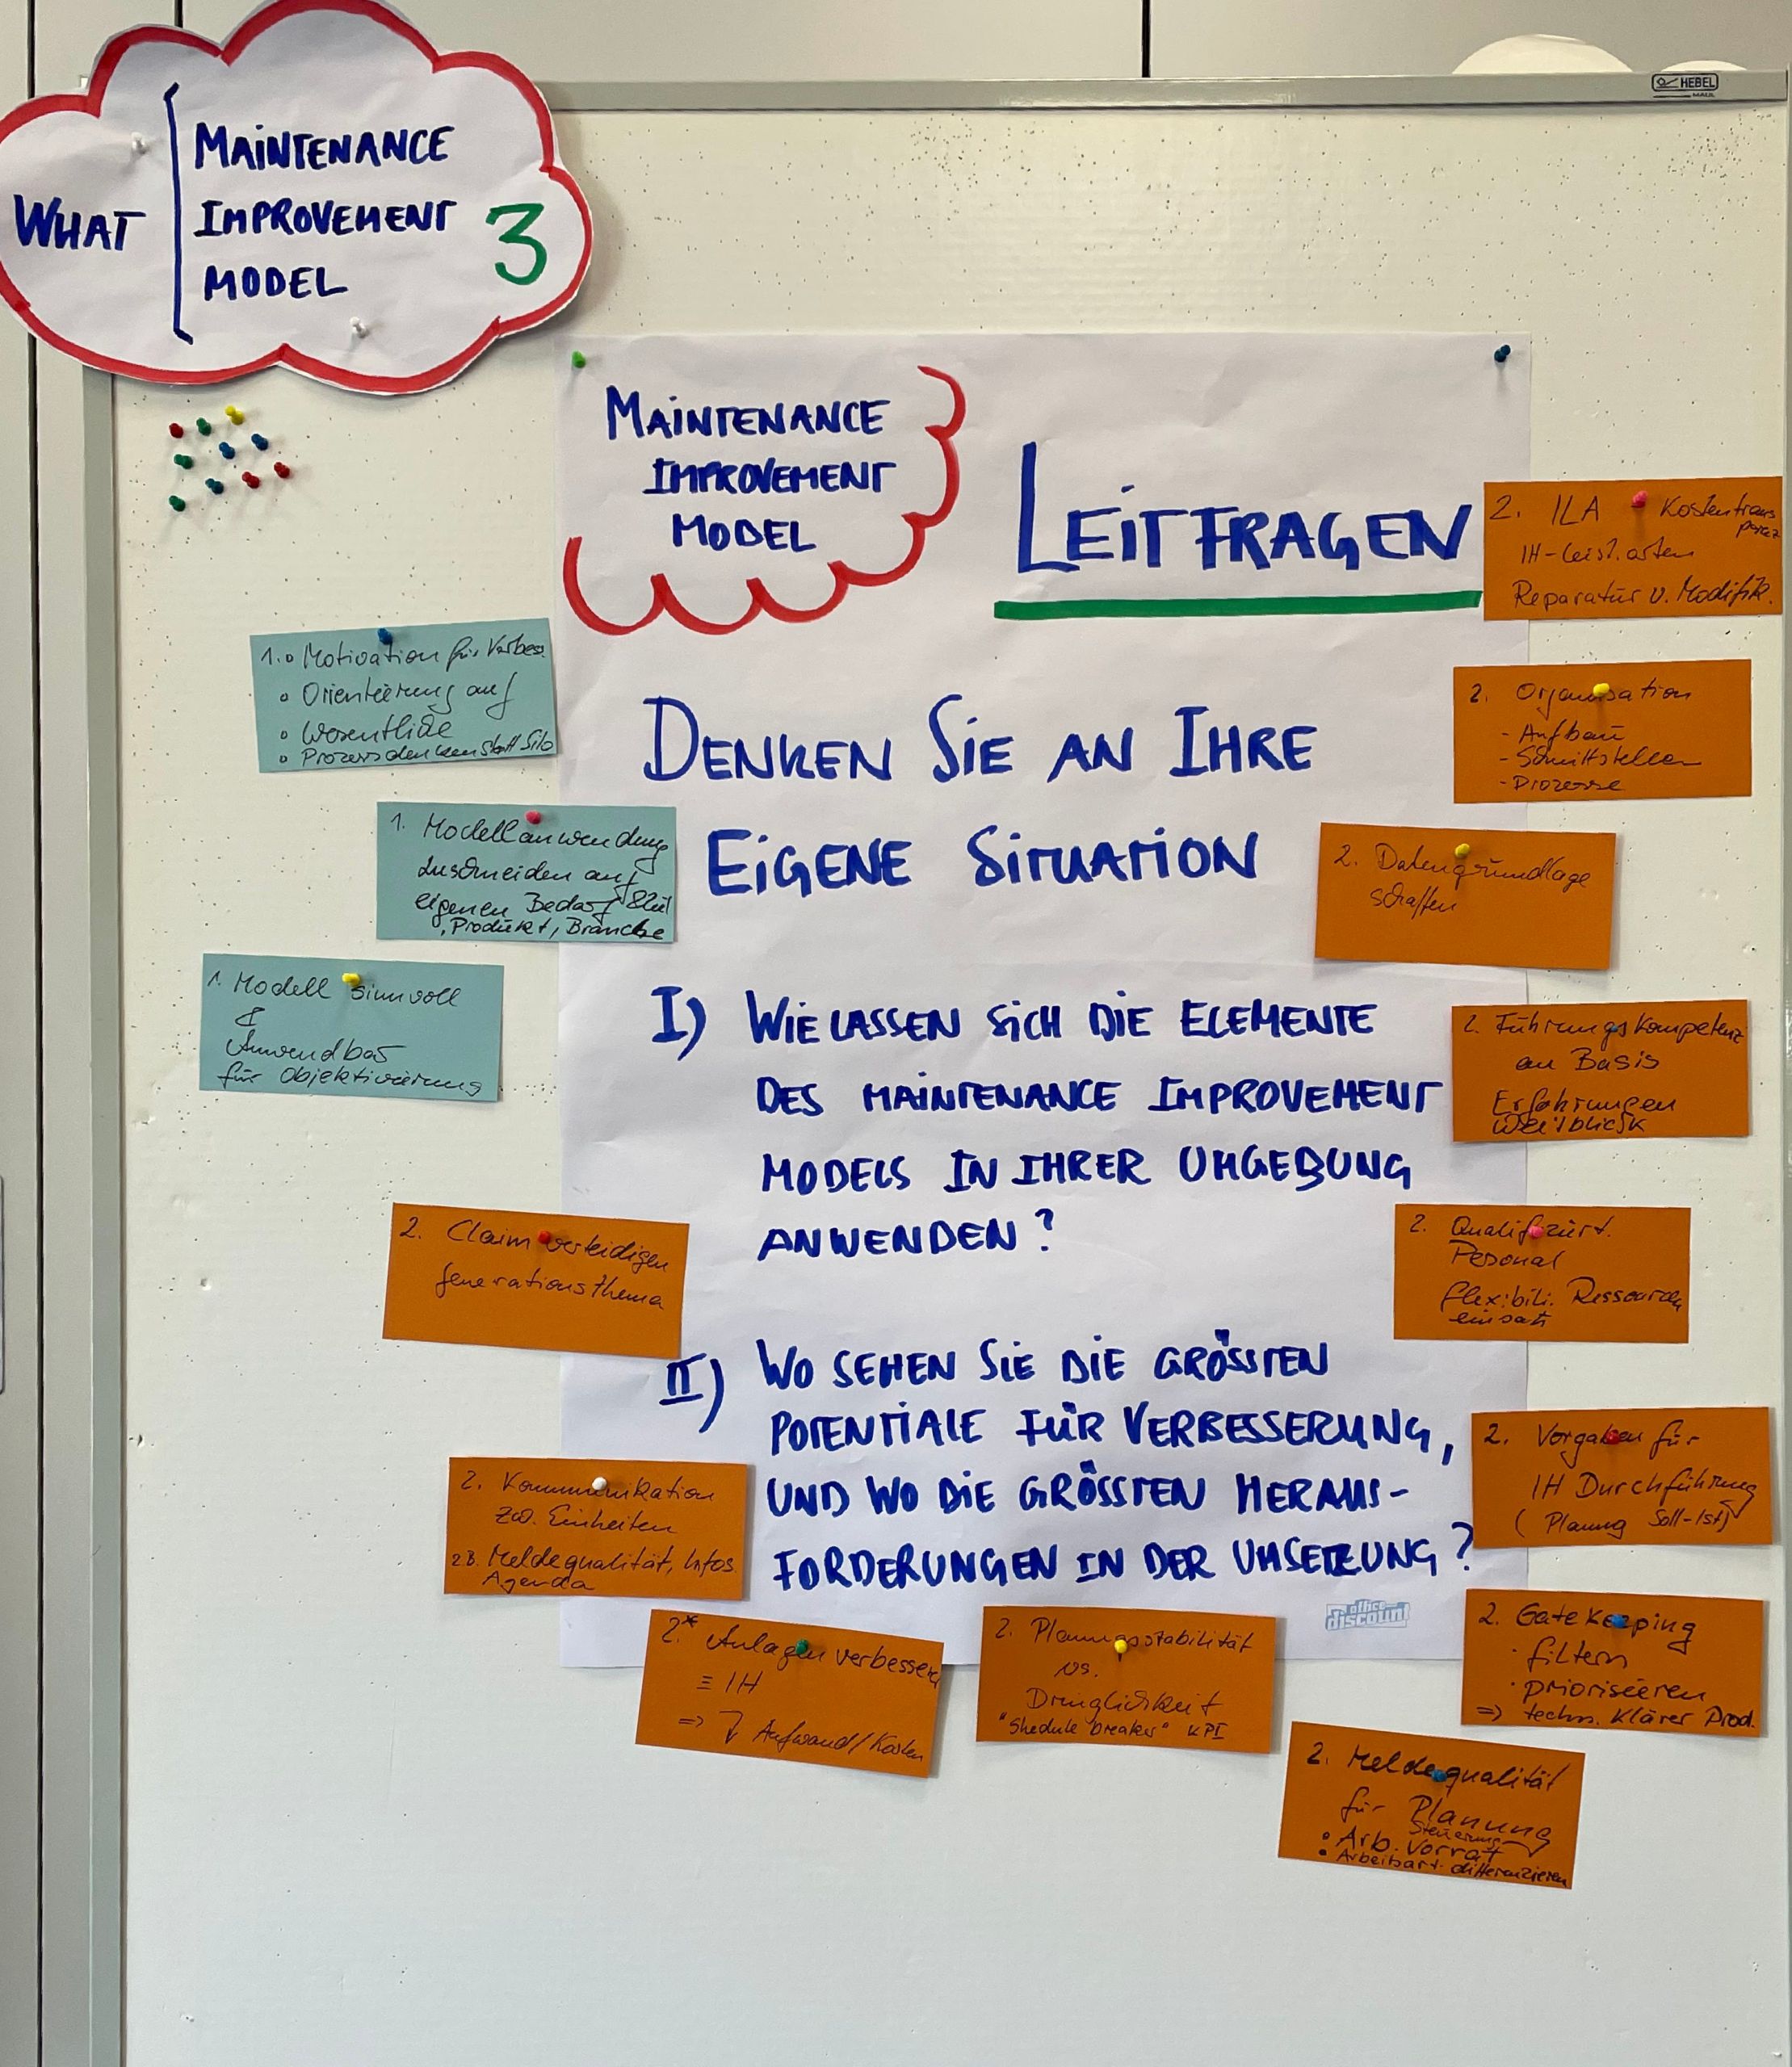 HEBEL
MAUL
WHAT
MAINTENANCE
IMPROVEMENT
MODEL
3
MAINTENANCE
IMPROVEMENT
MODEL
LEITFRAGEN
DENKEN SIE AN IHRE
EIGENE SITUATION
I) WIE LASSEN SICH DIE ELEMENTE
DES MAINTENANCE IMPROVEMENT
MODELS IN IHRER UMGEBUNG
ANWENDEN?
II) WO SEHEN SIE DIE GRÖSSTEN
POTENTIALE FÜR VERBESSERUNG,
UND WO DIE GRÖSSTEN HERAUS-
FORDERUNGEN IN DER UMSETZUNG?
office
discount
1. o Motivation für Verbes.
o Orientierung auf
o Wesentliche
o Prozessdenken statt Silo
1. Modellanwendung
zuschneiden auf
eigenen Bedarf
, Produkt, Branche
1. Modell sinnvoll
&
Anwendbar
für Objektivierung
2. Claim verteidigen
Generationsthema
2. Kommunikation
zw. Einheiten
zB. Meldequalität, Infos
Agenda
2.* Anlagen verbessern
≡ IH
=> Aufwand/Kosten
2. Planungsstabilität
vs.
Dringlichkeit
"Shedule breaker" KPI
2. ILA Kostentrans
parez
IH-Leist.arten
Reparatur u. Modifik.
2. Organisation
- Aufbau
- Schnittstellen
- Prozesse
2. Datengrundlage
schaffen
2. Führungskompetenz
an Basis
Erfahrungen
Weitblick
2. Qualifizirt.
Personal
flexibili. Ressourcen
einsatz
2. Vorgaben für
IH Durchführung
(Planung Soll-Ist)
2. Gatekeeping
· filtern
· priorisieren
=> techn. Klärer Prod.
2. Meldequalität
für Planung
Steuerung
• Arb. Vorrat
• Arbeitsart. differenzieren